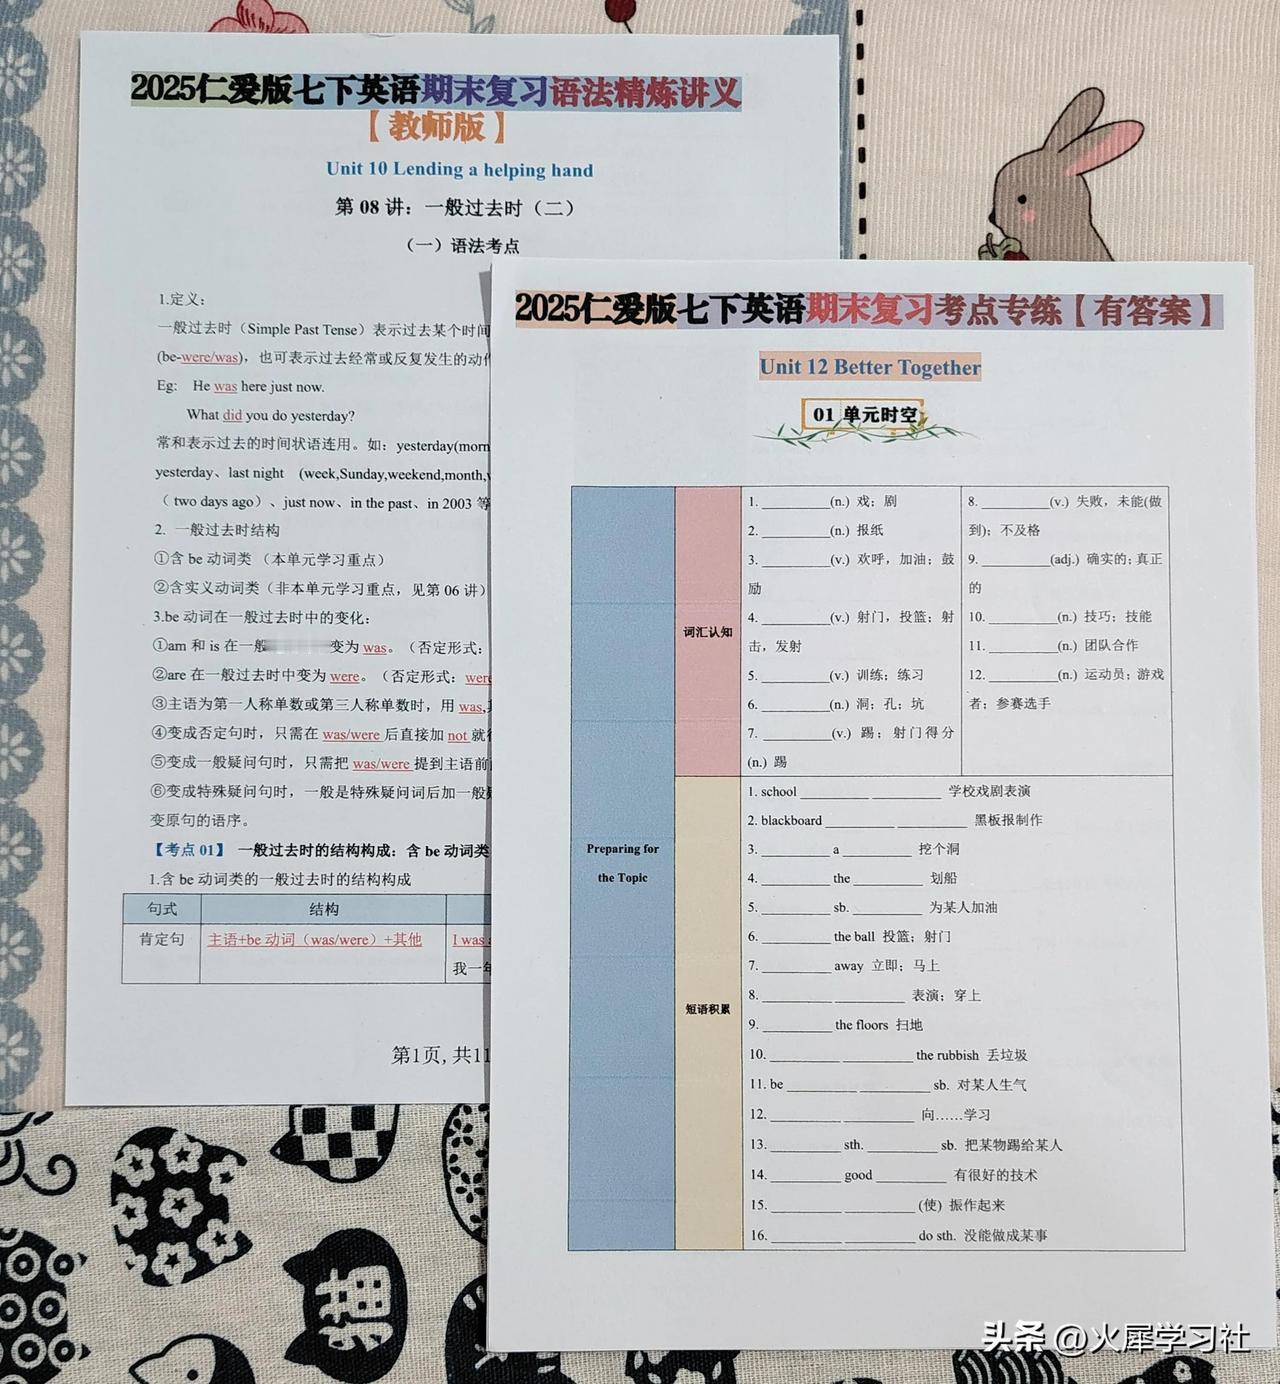 2025仁爱版七下英语期末复习语法精炼讲义
【教师版】
Unit 10 Lending a helping hand
第 08 讲：一般过去时（二）
（一）语法考点
1.定义：
一般过去时（Simple Past Tense）表示过去某个时间
(be-were/was)，也可表示过去经常或反复发生的动作
Eg: He was here just now.
What did you do yesterday?
常和表示过去的时间状语连用。如：yesterday(morn
yesterday、last night (week,Sunday,weekend,month,
（ two days ago）、just now、in the past、in 2003 等
2. 一般过去时结构
①含 be 动词类 （本单元学习重点）
②含实义动词类（非本单元学习重点，见第 06 讲）
3.be 动词在一般过去时中的变化：
①am 和 is 在一般 变为 was。（否定形式：
②are 在一般过去时中变为 were。（否定形式：were
③主语为第一人称单数或第三人称单数时，用 was,
④变成否定句时，只需在 was/were 后直接加 not 就
⑤变成一般疑问句时，只需把 was/were 提到主语前
⑥变成特殊疑问句时，一般是特殊疑问词后加一般
变原句的语序。
【考点 01】 一般过去时的结构构成：含 be 动词类
1.含 be 动词类的一般过去时的结构构成
句式 结构
肯定句 主语+be 动词（was/were）+其他 I was a
我一年
第1页,共11
2025仁爱版七下英语期末复习考点专练【有答案】
Unit 12 Better Together
01 单元时空
Preparing for
the Topic
词汇认知
1. __________(n.) 戏；剧
2. __________(n.) 报纸
3. __________(v.) 欢呼，加油；鼓
励
4. __________(v.) 射门，投篮；射
击，发射
5. __________(v.) 训练；练习
6. __________(n.) 洞；孔；坑
7. __________(v.) 踢；射门得分
(n.) 踢
8. __________(v.) 失败，未能(做
到)；不及格
9. __________(adj.) 确实的；真正
的
10. __________(n.) 技巧；技能
11. __________(n.) 团队合作
12. __________(n.) 运动员；游戏
者；参赛选手
短语积累
1. school __________ __________ 学校戏剧表演
2. blackboard __________ __________ 黑板报制作
3. __________ a __________ 挖个洞
4. __________ the __________ 划船
5. __________ sb. __________ 为某人加油
6. __________ the ball 投篮；射门
7. __________ away 立即；马上
8. __________ __________ 表演；穿上
9. __________ the floors 扫地
10. __________ __________ the rubbish 丢垃圾
11. be __________ __________ sb. 对某人生气
12. __________ __________ 向……学习
13. __________ sth. __________ sb. 把某物踢给某人
14. __________ good __________ 有很好的技术
15. __________ __________ (使) 振作起来
16. __________ __________ do sth. 没能做成某事
猫
头条 @火犀学习社